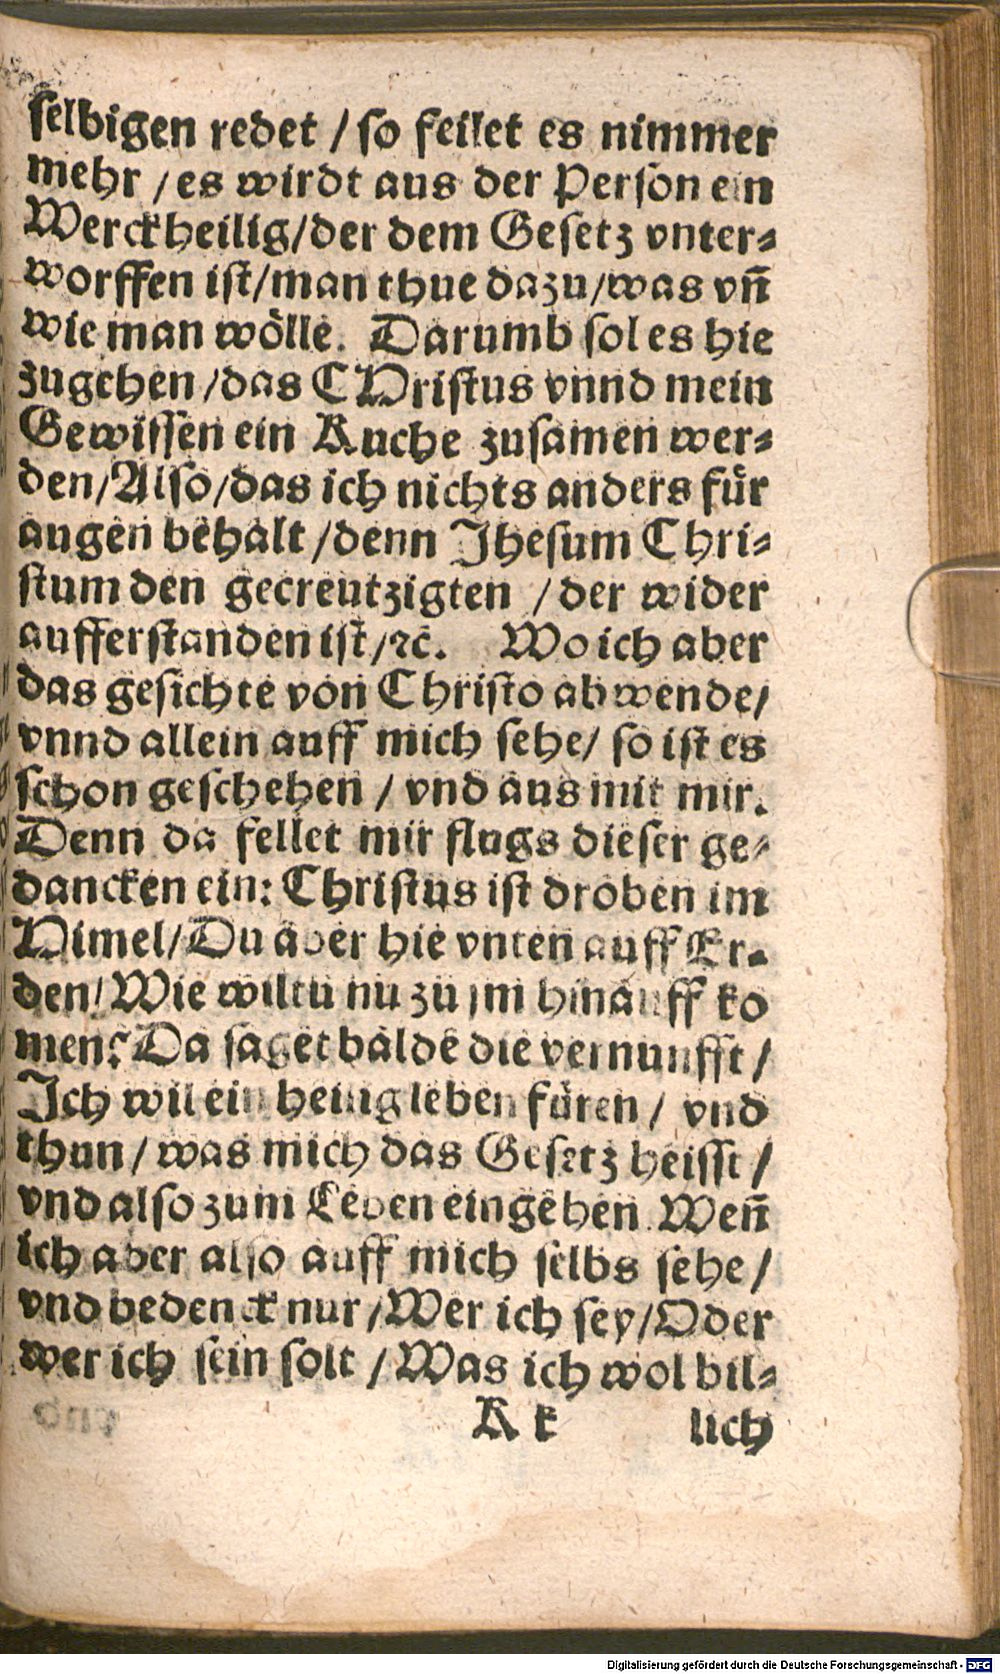 selbigen redet / so feilet es nimmer
mehr / es wirdt aus der Person ein
Werckheilig/der dem Gesetz vnter-
worffen ist/man thue dazu/was vñ
wie man wölle. Darumb sol es hie
zugehen /das CHristus vnnd mein
Gewissen ein Kuche zusamen wer-
den/Also/das ich nichts anders für
augen behalt /denn Jhesum Chri-
stum den gecreutzigten / der wider
aufferstanden ist/ꝛc. Wo ich aber
das gesichte von Christo abwende/
vnnd allein auff mich sehe/ so ist es
schon geschehen / vnd aus mit mir.
Denn da fellet mir flugs dieser ge-
dancken ein: Christus ist droben im
Himel/Du aber hie vnten auff Er-
den/Wie wiltu nu zu jm hinauff ko
men? Da saget balde die vernunfft /
Ich wil ein heilig leben füren / vnd
thun / was mich das Gesetz heisst /
vnd also zum Leben eingehen. Weñ
ich aber also auff mich selbs sehe /
vnd bedenck nur /Wer ich sey/Oder
wer ich sein solt / Was ich wol bil-
K k lich
Digitalisierung gefördert durch die Deutsche Forschungsgemeinschaft - DFG